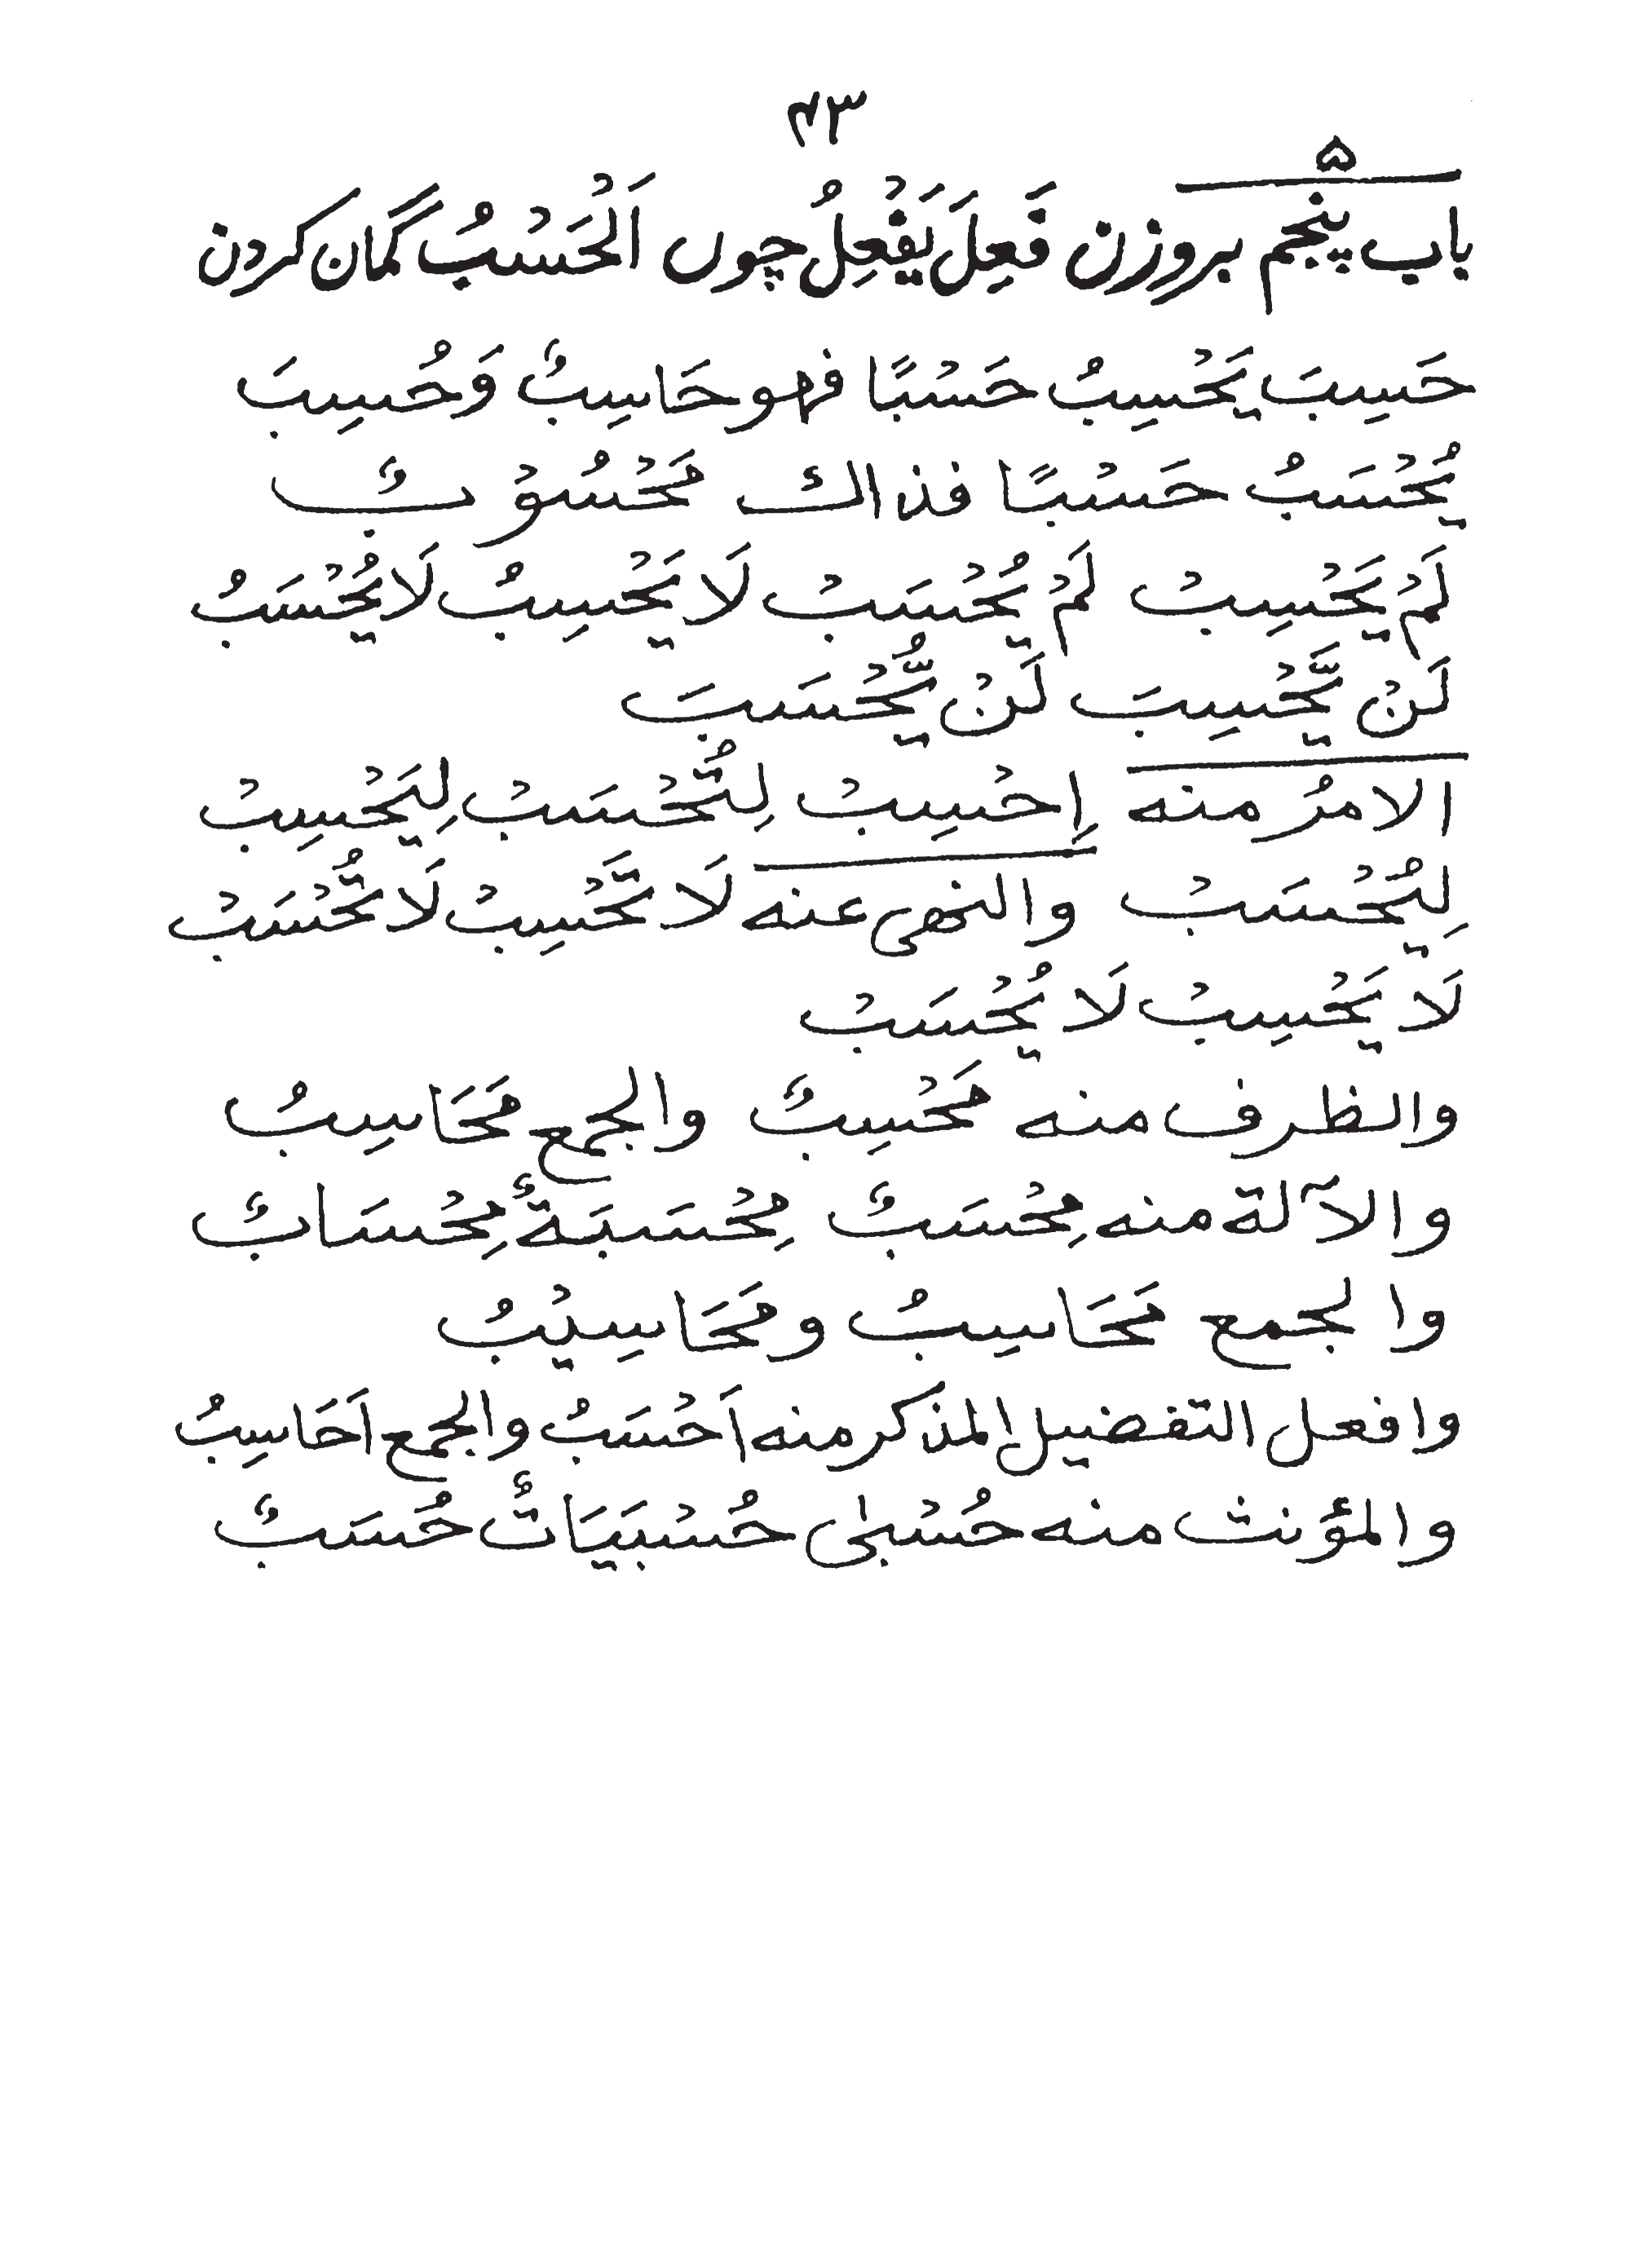 ۴۳
۵
باب پنجم بروزن فَعِلَ يَفْعِلُ چوں اَلْحَسْبُ گمان کردن
حَسِبَ يَحْسِبُ حَسْبًا فهو حَاسِبٌ وَحُسِبَ
يُحْسَبُ حَسْبًا فذاك مَحْسُوْبٌ
لَمْ يَحْسِبْ لَمْ يُحْسَبْ لَا يَحْسِبُ لَا يُحْسَبُ
لَنْ يَّحْسِبَ لَنْ يُّحْسَبَ
الامرُ منه اِحْسِبْ لِتُحْسَبْ لِيَحْسِبْ
لِيُحْسَبْ والنهى عنه لَا تَحْسِبْ لَا تُحْسَبْ
لَا يَحْسِبْ لَا يُحْسَبْ
والظرف منه مَحْسِبٌ والجمع مَحَاسِبُ
والآلة منه مِحْسَبٌ مِحْسَبَةٌ مِحْسَابٌ
والجمع مَحَاسِبُ ومَحَاسِيْبُ
وافعل التفضيل المذكر منه اَحْسَبُ والجمع اَحَاسِبُ
والمؤنث منه حُسْبٰى حُسْبَيَاتٌ حُسَبٌ